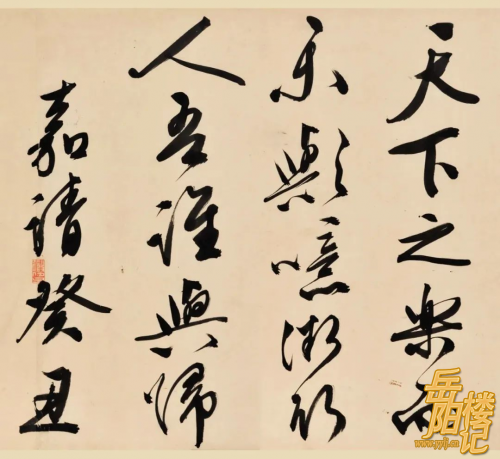 天下之樂而
樂歟噫微斯
人吾誰與歸
嘉靖癸丑
岳阳楼记